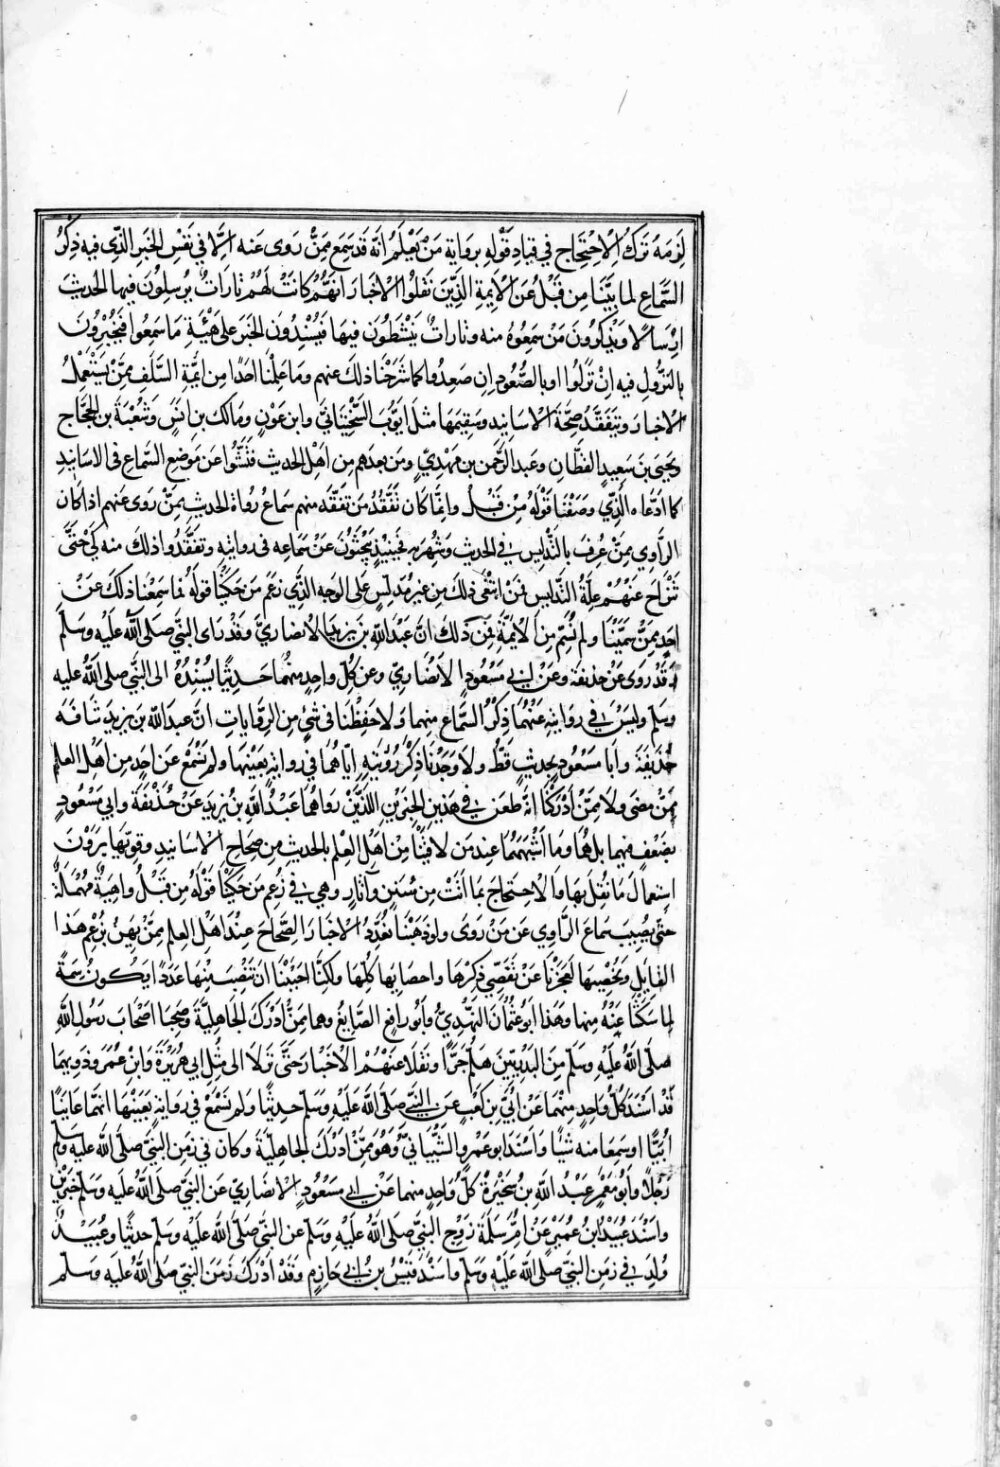 لَزِمَهُ تَرْكُ الاِحْتِجَاجِ في قياد قَوْلِهِ بروايةِ مَنْ يَعْلَمُ انّهُ قَد سَمِعَ مِمَّنْ رَوى عَنه الّا في نَفْسِ الخَبرِ الّذي فيه ذِكرُ
السّماعِ لما بَيَّنّا مِن قَبلُ عَنِ الاَيمةِ الذِّينَ نَقلوا الاَخْبارَ انَّهُم كانَتْ لَهُمْ تارَاتٌ يُرسِلُون فيها الحديثَ
اِرْسَالًا ولا يَذكُرُونَ مَنْ سَمِعُوهُ منه وتاراتٌ يَنْشَطُونَ فيها فَيُسْنِدُونَ الخَبَرَ على هَيْئَةِ مَا سَمِعُوا فَيُخْبِرُونَ
بالنّزُولِ فيه اِنْ نَزَلُوا او بالصُّعُودِ اِن صَعِدُوا كما شَرَحْنَا ذلك عنهم وما عَلِمْنا احَدًا مِن ايمّةِ السَّلَفِ مِمَّنْ يَسْتَعْمِلُ
الاَخبارَ وتَيَفَقَّدُ صِحَّةَ الاَسانِيد وسَقِيمَها مثلَ ايُّوبَ السَّخْتِيَانِيِّ وابن عَوْنٍ ومَالك بن انَسٍ وَشُعْبَةَ بنِ الحَجّاج
وَيَحيَى بن سَعِيدٍ القَطَّانِ وعَبد الرَّحْمنِ بن مَهْدِيٍ ومَن بَعدهم مِن اَهْلِ الحَديث فَتَّشُوا عَن مَوضِعِ السَّماعِ في الاَسَانِيدِ
كما ادَّعَاه الَّذِي وَصَفْنَا قَوْلَهُ مِنْ قَبْلُ وانّما كان تَفَقُّدُ مَن تَفَقَّدَ منهم سَماعَ رُواةِ الحَديثِ مِمَّنْ رَوى عَنهم اذا كان
الرَّاوِي مِمَّنْ عُرِفَ بالتَّدليسِ في الحَديث وشُهِرَ به فَحِينَيِذٍ يَبْحَثُونَ عَنْ سَماعِه في روايته وتَفَقَّدُوا ذلك منه كَيْ
تَنْزَاحَ عَنْهُمْ عِلّةُ التَّدليس فَمَنْ ابْتَغَى ذلك مِن غير مُدَلِّسٍ على الوجه الَّذِي زَعَم مَن حَكَيْنَا قوله فما سَمِعْنَا ذلك عَنْ
اَحدٍ مِمَّنْ سَمَّيْنَا ولم نُسَمِّ مِن الاَئِمّةِ فَمِن ذلك انَّ عَبْدَ اللهِ بنَ يَزِيدَ الاَنصَاريَّ وقَدْ رَاى النَّبيَّ صَلَى اللهُ عَلَيْهِ وسَلَّمَ
قَدْ رَوى عَنْ حُذيفةَ وَعَنْ ابي مَسْعُودٍ الاَنْصَارِيِّ وعن كُلِّ واحدٍ منهُما حَديثًا يُسْنِدُهُ الى النَّبي صَلى اللهُ عليه
وسَلم وليسَ في روايته عَنْهُمَا ذِكْرُ السَّماع منهما ولا حَفِظْنَا في شَيءٍ مِن الرِّواياتِ انَّ عبدَ اللهِ بن يَزيدَ شافَهَ
حُذَيْفَةَ وابَا مَسْعُودٍ بحديثٍ قَطُّ ولا وَجَدْنا ذِكْرَ رُؤْيَتِهِ ايّاهُما في روايةٍ بعَيْنِها ولم نَسْمَعْ عن احدٍ من اَهْلِ العلم
مِمَّنْ مَضى ولا مِمَّنْ اَدْرَكْنَا انّهُ طَعَن في هَذين الخَبَرَيْنِ اللَّذَيْنِ رَواهُما عَبْدُ اللهِ بنُ يَزيدَ عَنْ حُذَيْفَةَ وابي مَسْعُودٍ
بضَعْفٍ فيهما بل هُما وما اَشْبَهَهُما عِندَ مَن لاقَيْنَا مِن اَهْلِ العِلْمِ بالحديث مِن صِحَاحِ الاَسانيدِ وقويّها يَرَوْنَ
استعمالَ ما نُقِلَ بها والاِحتجاجَ بما اَتَتْ مِن سُنَنٍ وآثَارٍ وهي في زَعم مَن حَكَيْنا قَوْلَه مِن قَبْلُ واهيةٌ مُهْمَلَةٌ
حتّى يُصِيبَ سَماعَ الرَّاوي عَن مَنْ رَوى ولو ذَهَبْنا نُعَدِّدُ الاَخبارَ الصِّحاحَ عِنْدَ اَهْلِ العِلمِ مِمَّنْ يَهِنُ بزَعْمِ هَذا
القايلِ ونُحْصِيها لَعَجَزْنا عَنْ تَقَصِّي ذِكْرِها واحصايها كُلِّها ولكِنّا احْبَبْنا انْ نَنْصِبَ مِنها عَدَدًا يَكُونُ سِمَةً
لما سَكَتْنا عَنْهُ مِنها وهَذا ابُو عُثْمَانَ النَّهْدِيُّ وابُو رافِعٍ الصّايغُ وهما مِمَّنْ اَدْرَكَ الجَاهِليَّةَ وَصَحِبَا اَصْحَابَ رَسُولِ اللهِ
صَلَى اللهُ عَلَيْهِ وسَلَّم مِنَ البَدْرِيِّينَ هَلُمَّ جَرًّا ونَقَلا عَنْهُمُ الاَخْبارَ حَتَّى نَزَلَا الى مِثْلِ ابي هُرَيْرَةَ وَابْنِ عُمَرَ وذَوِيهما
قَدْ اسْنَدَ كُلُّ واحدٍ مِنْهما عَنْ اُبَيِّ بنِ كَعْبٍ عَن النَّبي صَلَى اللهُ عَلَيْهِ وسَلَم حديثًا ولم نَسْمَعْ في روايةٍ بعَيْنِها انّهما عَايَنَا
اُبَيًّا او سَمِعَا منه شيئًا وَاَسْنَدَ ابو عَمْرٍو الشَّيْبَانيُّ وَهُو مِمَّنْ اَدْرَكَ الجاهليّةَ وكان في زَمَنِ النّبي صَلى الله عليه وسلم
رَجُلًا وابُو مَعْمَرٍ عَبْدُ اللهِ بنُ سَخْبَرَةَ كلُّ واحدٍ منهما عَن ابي مَسْعُودٍ الاَنصَاريِّ عَن النَّبي صَلَى اللهُ عليه وسَلم خَبَرَيْن
واَسْنَدَ عُبَيْدُ ابنُ عُمَيْرٍ عَنْ امِّ سَلَمَةَ زَوْجِ النَّبي صَلَى اللهُ عَلَيْهِ وسَلَّم عن النَّبي صَلَى اللهُ عَلَيْه وسَلَم حديثًا وعُبَيْدٌ
وُلِدَ في زَمَنِ النّبي صَلَى اللهُ عَلَيْهِ وسَلَّم واَسْنَدَ قَيْسُ بنُ ابي حَازِمٍ وَقَدْ ادْرَكَ زَمَنَ النَّبي صَلَى اللهُ عَلَيْهِ وسَلَّم